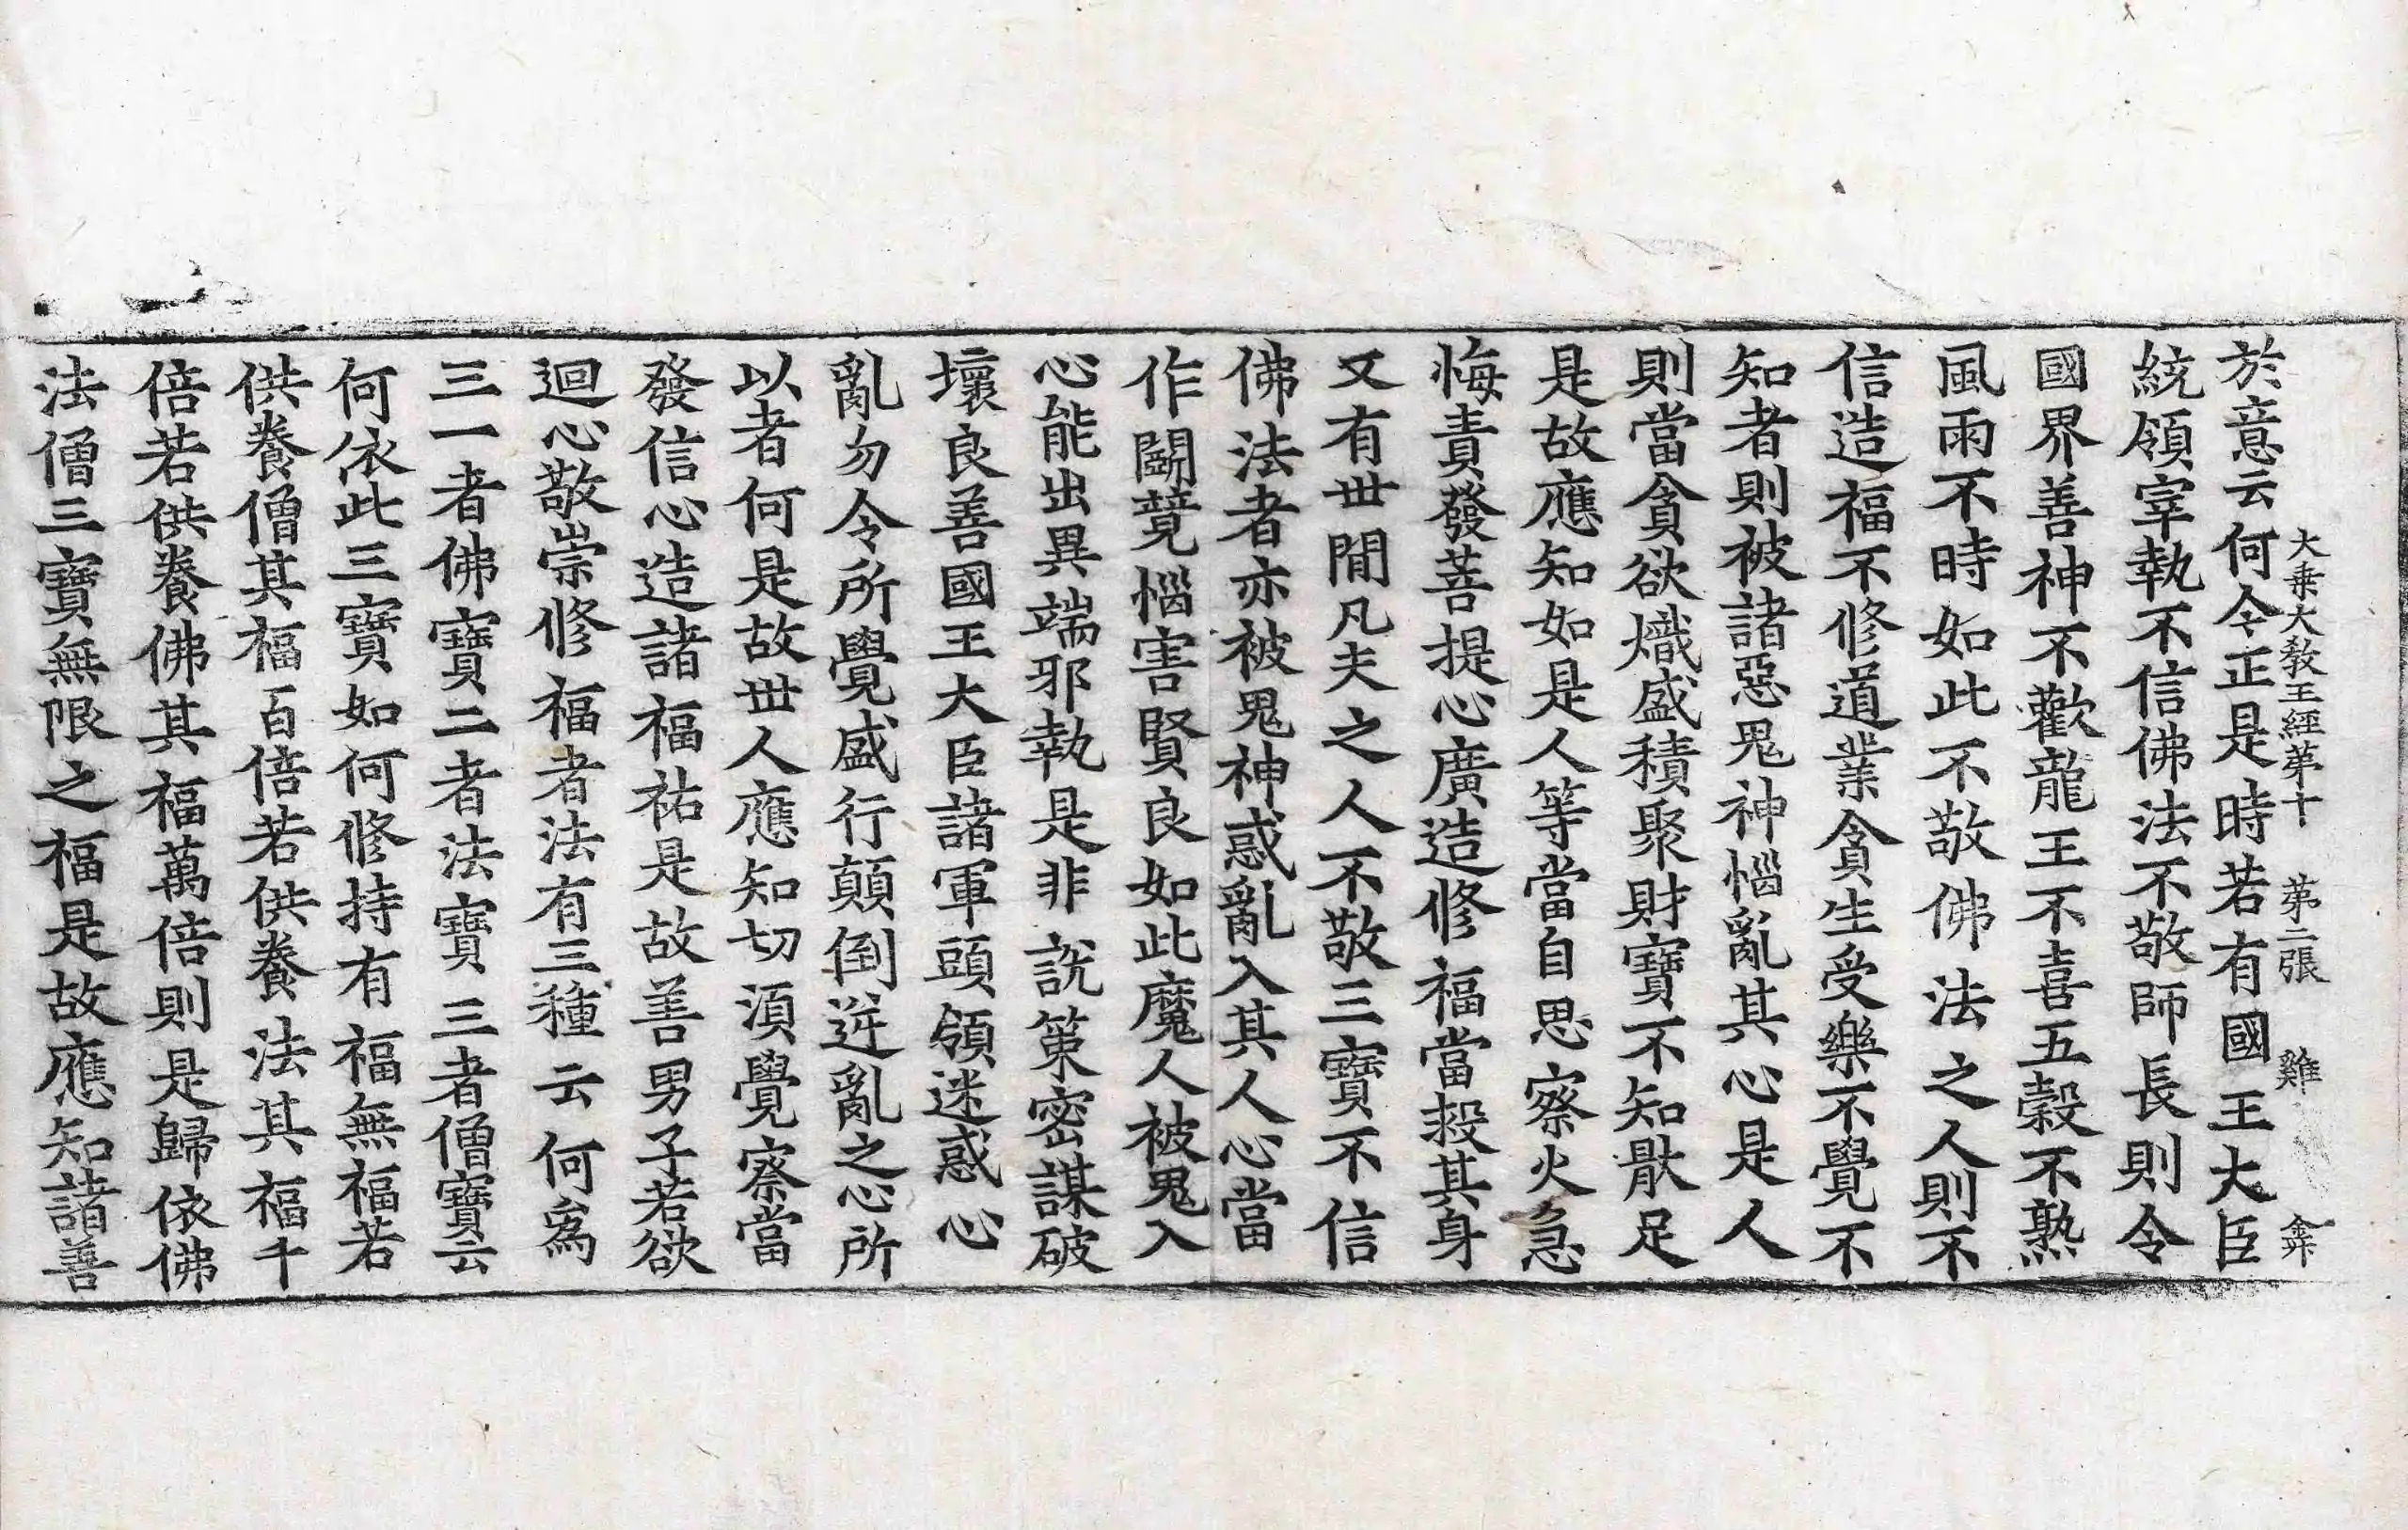 於意云何今正是時若有國王大臣
大乗大敎王經苐十 苐二張 雞
統領宰執不信佛法不敬師長則令
國界善神不歡龍王不喜五穀不熟
風雨不時如此不敬佛法之人則不
信造福不修道業貪生受樂不覺不
知者則被諸惡鬼神惱亂其心是人
則當貪欲熾盛積聚財寶不知猒足
是故應知如是人等當自思察火急
悔責發菩提心廣造修福當投其身
又有世閒凡夫之人不敬三寶不信
佛法者亦被鬼神惑亂入其人心當
作鬪諍惱害賢良如此魔人被鬼入
心能出異端邪執是非說策密謀破
壞良善國王大臣諸軍頭領迷惑心
亂勿令所覺盛行顛倒逆亂之心所
以者何是故世人應知切須覺察當
發信心造諸福祐是故善男子若欲
迴心敬崇修福者法有三種云何為
三一者佛寶二者法寶三者僧寶云
何依此三寶如何修持有福無福若
供養僧其福百倍若供養法其福千
倍若供養佛其福萬倍則是歸依佛
法僧三寶無限之福是故應知諸善